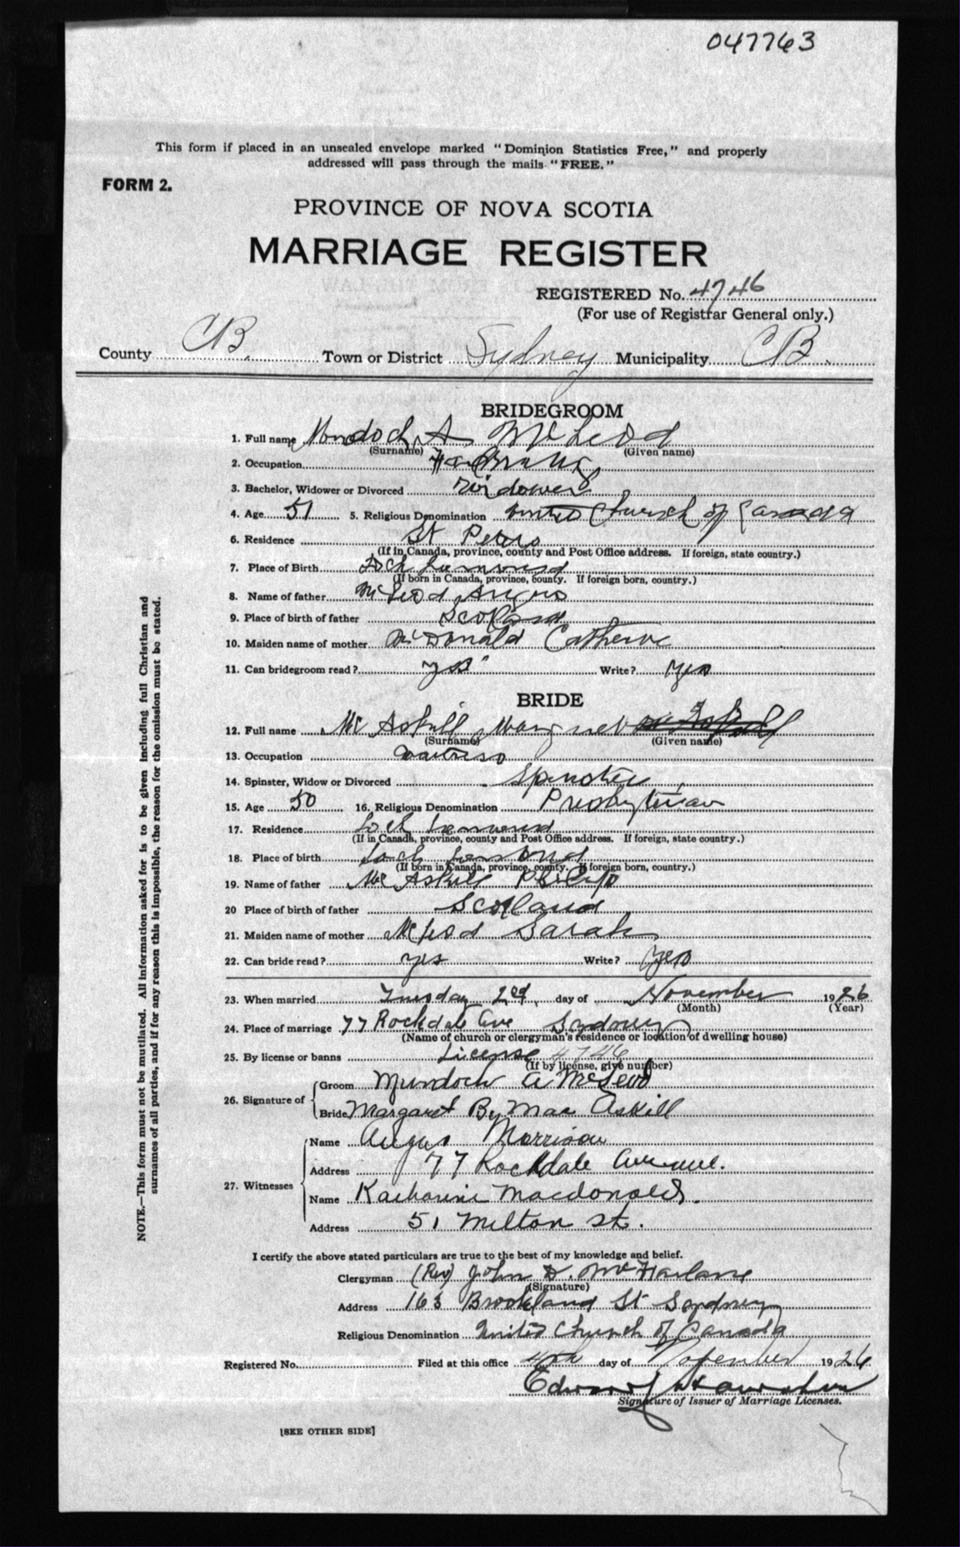 047763
This form if placed in an unsealed envelope marked "Dominion Statistics Free," and properly
addressed will pass through the mails "FREE."
FORM 2.
PROVINCE OF NOVA SCOTIA
MARRIAGE REGISTER
REGISTERED No. 4746
(For use of Registrar General only.)
County CB. Town or District Sydney Municipality CB.
BRIDEGROOM
1. Full name Murdoch A McLeod
(Surname) (Given name)
2. Occupation
3. Bachelor, Widower or Divorced Widower
4. Age 51 5. Religious Denomination United Church of Canada
6. Residence St Peters
(If in Canada, province, county and Post Office address. If foreign, state country.)
7. Place of Birth Loch Lomond
(If born in Canada, province, county. If foreign born, country.)
8. Name of father McLeod Angus
9. Place of birth of father Scotland
10. Maiden name of mother McDonald Catherine
11. Can bridegroom read? yes" Write? yes
BRIDE
12. Full name Mc Askill Margaret
(Surname) (Given name)
13. Occupation waitress
14. Spinster, Widow or Divorced Spinster
15. Age 50 16. Religious Denomination Presbyterian
17. Residence Loch Lomond
(If in Canada, province, county and Post Office address. If foreign, state country.)
18. Place of birth Loch Lomond
(If born in Canada, province, county. If foreign born, country.)
19. Name of father Mc Askill Philip
20 Place of birth of father Scotland
21. Maiden name of mother McLeod Sarah
22. Can bride read? yes Write? yes
23. When married Tuesday 2nd day of November 1926
(Month) (Year)
24. Place of marriage 77 Rockdale Ave Sydney
(Name of church or clergyman's residence or location of dwelling house)
25. By license or banns License 4746
(If by license, give number)
26. Signature of Groom Murdoch A McLeod
Bride Margaret By Mac Askill
27. Witnesses Name Angus Morrison
Address 77 Rockdale Avenue.
Name Katharine Macdonald.
Address 51 Milton St.
I certify the above stated particulars are true to the best of my knowledge and belief.
Clergyman (Rev) John D. McFarlane
(Signature)
Address 163 Brookland St Sydney
Religious Denomination United Church of Canada
Registered No. Filed at this office day of November 1926
Edward
Signature of Issuer of Marriage Licenses.
[SEE OTHER SIDE]
NOTE.—This form must not be mutilated. All information asked for is to be given including full Christian and
surnames of all parties, and if for any reason this is impossible, the reason for the omission must be stated.